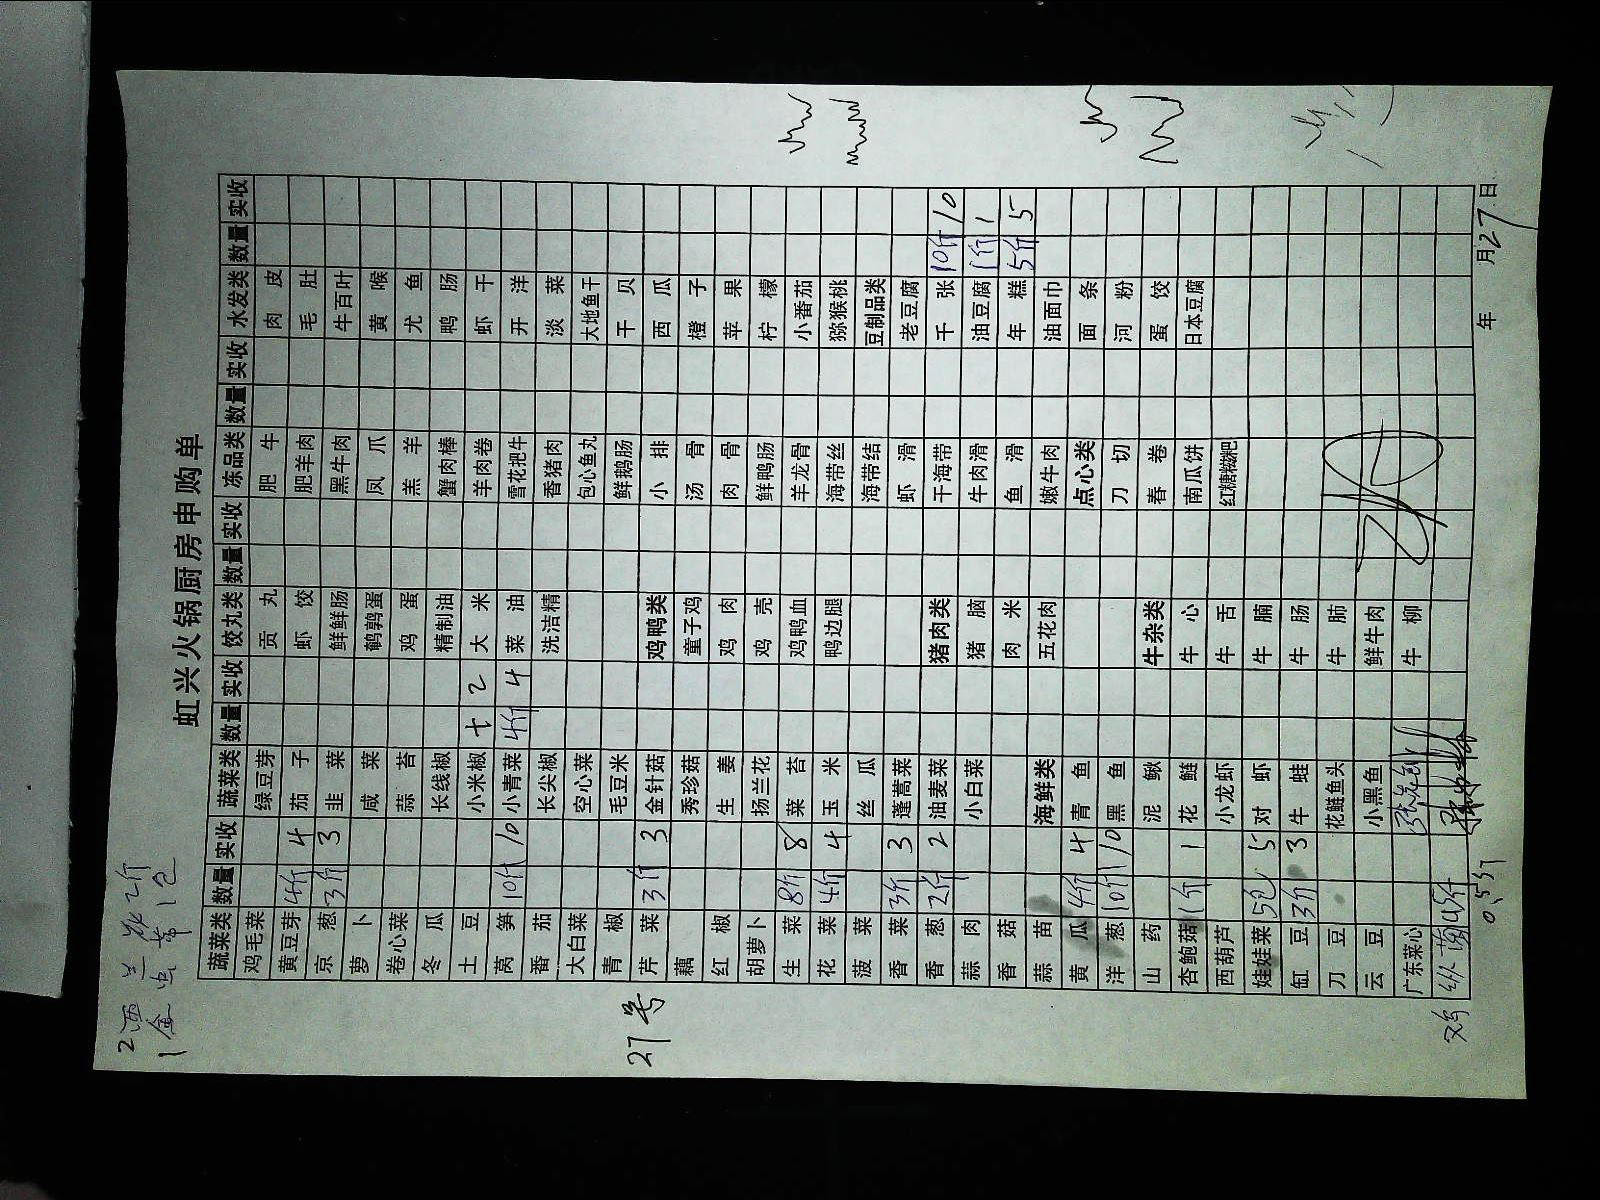 2 西兰花 2斤
1 金 常 1包
虹兴火锅厨房申购单
27号
蔬菜类 数量 实收 蔬菜类 数量 实收 饺丸类 数量 实收 冻品类 数量 实收 水发类 数量 实收
鸡毛菜 绿豆芽 贡丸 肥牛 肉皮
黄豆芽 4斤 4 茄子 虾饺 肥羊肉 毛肚
京葱 3斤 3 韭菜 鲜鲜肠 黑牛肉 牛百叶
萝卜 咸菜 鹌鹑蛋 凤爪 黄喉
卷心菜 蒜苔 鸡蛋 羔羊 尤鱼
冬瓜 长线椒 精制油 蟹肉棒 鸭肠
土豆 小米椒 七 2 大米 羊肉卷 虾干
莴笋 10斤 10 小青菜 4斤 4 菜油 雪花把牛 开洋
番茄 长尖椒 洗洁精 香猪肉 淡菜
大白菜 空心菜 包心鱼丸 大地鱼干
青椒 毛豆米 鲜鹅肠 干贝
芹菜 3斤 3 金针菇 鸡鸭类 小排 西瓜
藕 秀珍菇 童子鸡 汤骨 橙子
红椒 生姜 鸡肉 肉骨 苹果
胡萝卜 扬兰花 鸡壳 鲜鸭肠 柠檬
生菜 8斤 8 菜苔 鸡鸭血 羊龙骨 小番茄
花菜 4斤 4 玉米 鸭边腿 海带丝 猕猴桃
菠菜 丝瓜 海带结 豆制品类
香菜 3斤 3 蓬蒿菜 虾滑 老豆腐
香葱 2斤 2 油麦菜 猪肉类 干海带 千张 10斤 10
蒜肉 小白菜 猪脑 牛肉滑 油豆腐 1斤 1
香菇 肉米 鱼滑 年糕 5斤 5
蒜苗 海鲜类 五花肉 嫩牛肉 油面巾
黄瓜 4斤 4 青鱼 点心类 面条
洋葱 10斤 10 黑鱼 刀切 河粉
山药 泥鳅 牛杂类 春卷 蛋饺
杏鲍菇 1斤 1 花鲢 牛心 南瓜饼 日本豆腐
西葫芦 小龙虾 牛舌 红糖糍粑
娃娃菜 5包 5 对虾 牛腩
缸豆 3斤 3 牛蛙 牛肠
刀豆 花鲢鱼头 牛肺
云豆 小黑鱼 鲜牛肉
广东菜心 牛柳
鸡
0.5斤
年 月27日